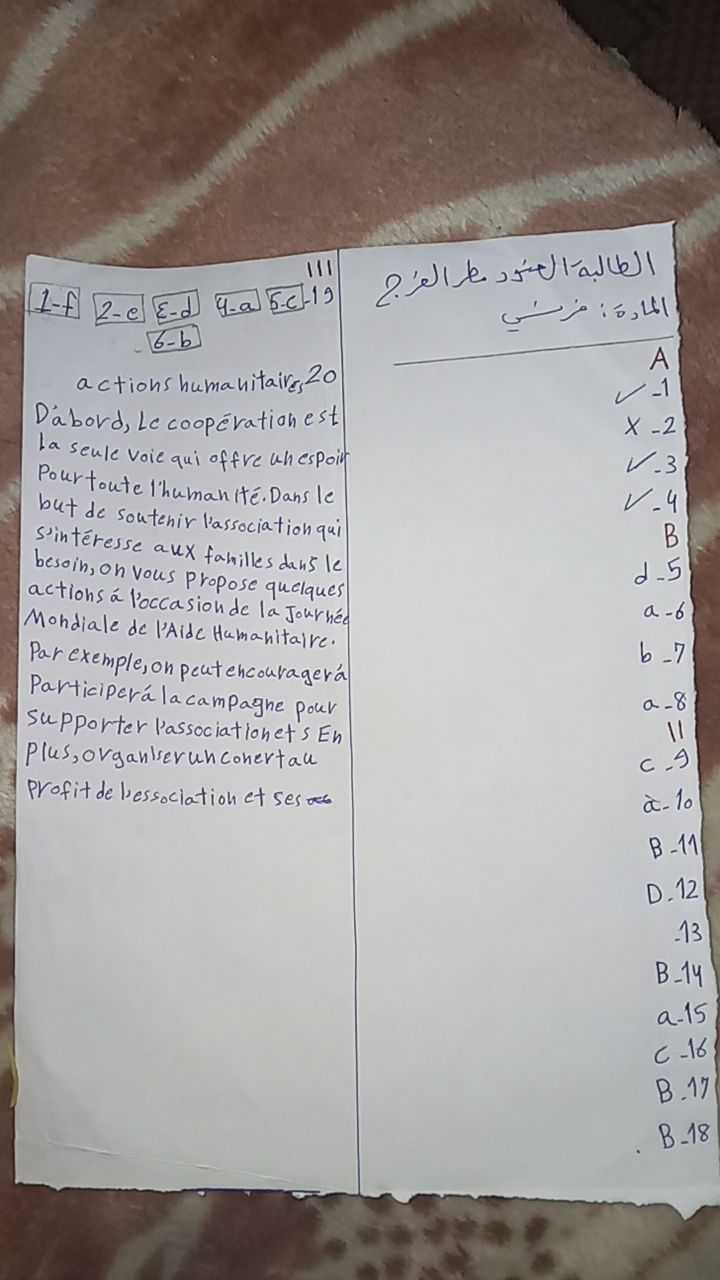 الطالبة: العنود مطر الفرج
المادة: فرنسي
A
✓ -1
X -2
✓ -3
✓ -4
B
d -5
a -6
b -7
a -8
11
c -9
a -10
B -11
D -12
-13
B -14
a -15
c -16
B -17
B -18
111
1-f 2-e 3-d 4-a 5-c -19
6-b
actions humanitaires 20
D'abord, Le coopération est
La seule voie qui offre un espoir
Pour toute l'humanité. Dans le
but de soutenir l'association qui
s'intéresse aux familles dans le
besoin, on vous propose quelques
actions á l'occasion de la Journée
Mondiale de l'Aide Humanitaire.
Par exemple, on peut encourager á
Participer á la campagne pour
supporter l'association et s En
plus, organiser un conert au
profit de l'essociation et ses